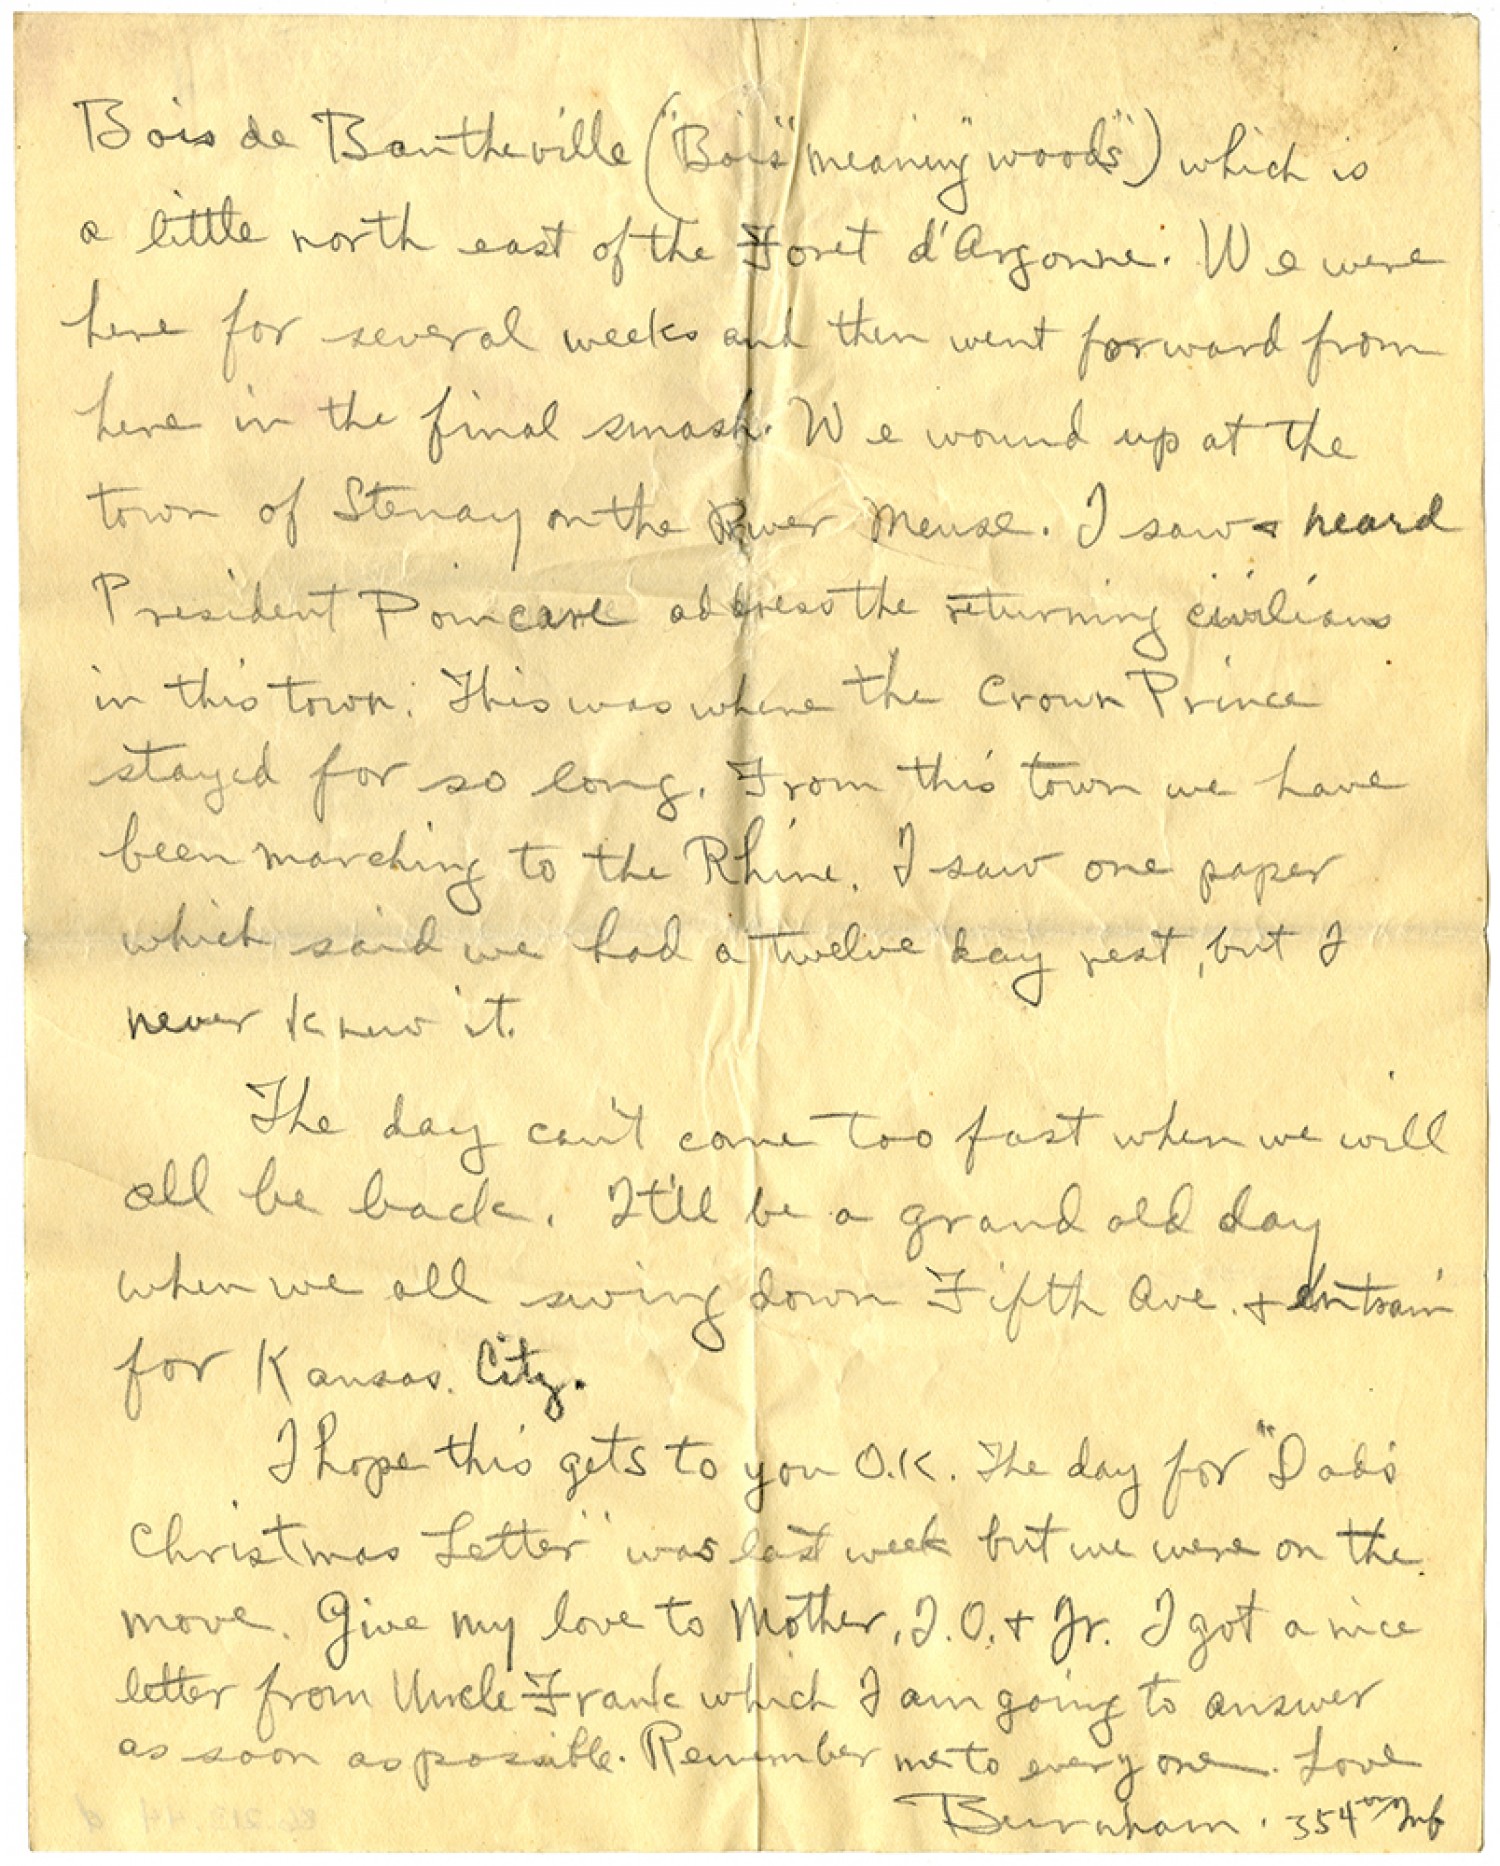 Bois de Bantheville ("Bois" meaning "woods") which is
a little north east of the Foret d'Argonne. We were
here for several weeks and then went forward from
here in the final smash. We wound up at the
town of Stenay on the River Meuse. I saw & heard
President Poincare address the returning civilians
in this town. This was where the Crown Prince
stayed for so long. From this town we have
been marching to the Rhine. I saw one paper
which said we had a twelve day rest, but I
never knew it.
The day can't come too fast when we will
all be back. It'll be a grand old day
when we all swing down Fifth Ave. & entrain
for Kansas City.
I hope this gets to you O.K. The day for "Dad's
Christmas Letter" was last week but we were on the
move. Give my love to Mother, J.O. & Jr. I got a nice
letter from Uncle Frank which I am going to answer
as soon as possible. Remember me to every one. Love
Burnham. 354th Inf